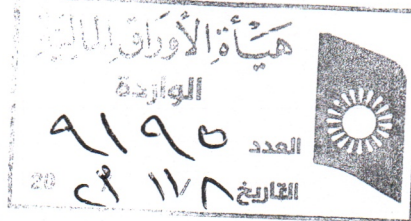 هيأة الأوراق المالية
الواردة
العدد ٩١٩٥
التاريخ ١١/٨ 20